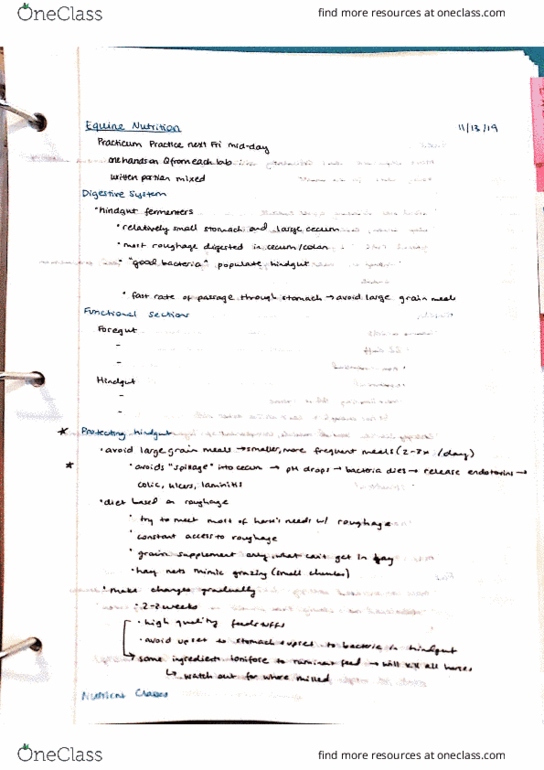 OneClass
find more resources at oneclass.com
Equine Nutrition 11/13/19
Practicum Practice next Fri mid-day
one hands on Q from each lab
written portion mixed
Digestive System
• hindgut fermenters
• relatively small stomach and large cecum
• most roughage digested in cecum/colon
• "good bacteria" populate hindgut
• fast rate of passage through stomach → avoid large grain meals
Functional Sections
Foregut
-
-
Hindgut
-
-
* Protecting hindgut
• avoid large grain meals → smaller, more frequent meals (2-3x /day)
* • avoids "spillage" into cecum → pH drops → bacteria dies → release endotoxins →
colic, ulcers, laminitis
• diet based on roughage
• try to meet most of horse's needs w/ roughage
• constant access to roughage
• grain supplement only what can't get in hay
• hay nets mimic grazing (small chunks)
• make changes gradually
• 2-3 weeks
• high quality feedstuffs
• avoid upset to stomach + upset to bacteria in hindgut
→ some ingredients to ruminant feed → will kill all horses
↳ watch out for where milled
Nutrient Classes
OneClass
find more resources at oneclass.com